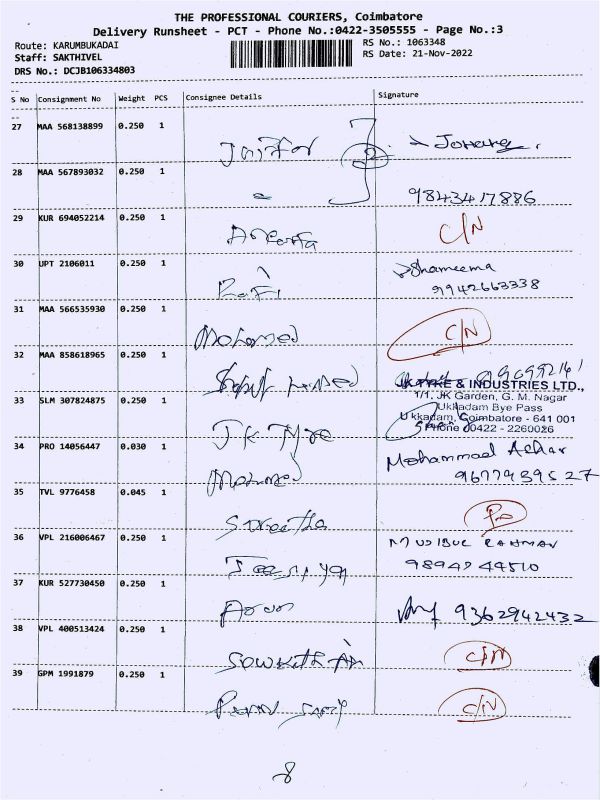 THE PROFESSIONAL COURIERS, Coimbatore
Delivery Runsheet - PCT - Phone No.:0422-3505555 - Page No.:3
Route: KARUMBUKADAI
RS No.: 1063348
Staff: SAKTHIVEL
RS Date: 21-Nov-2022
DRS No.: DCJB106334803
S No Consignment No Weight PCS Consignee Details Signature
27 MAA 568138899 0.250 1
28 MAA 567893032 0.250 1
9843417886
29 KUR 694052214 0.250 1
C/N
30 UPT 2106011 0.250 1
Shameema
Rafi
9942663338
31 MAA 566535930 0.250 1
Mohamed C/N
32 MAA 858618965 0.250 1
JK TYRE & INDUSTRIES LTD.,
33 SLM 307824875 0.250 1
1/1, JK Garden, G. M. Nagar
Ukkadam Bye Pass
Ukkadam, Coimbatore - 641 001
Phone 00422 - 2260026
JK Tyre
34 PRO 14056447 0.030 1
Mohammad
Mohamed
9677939527
35 TVL 9776458 0.045 1
36 VPL 216006467 0.250 1
MUJIBUR RAHMAN
9894944510
37 KUR 527730450 0.250 1
9362942432
38 VPL 400513424 0.250 1
C/N
39 GPM 1991879 0.250 1
C/N
8